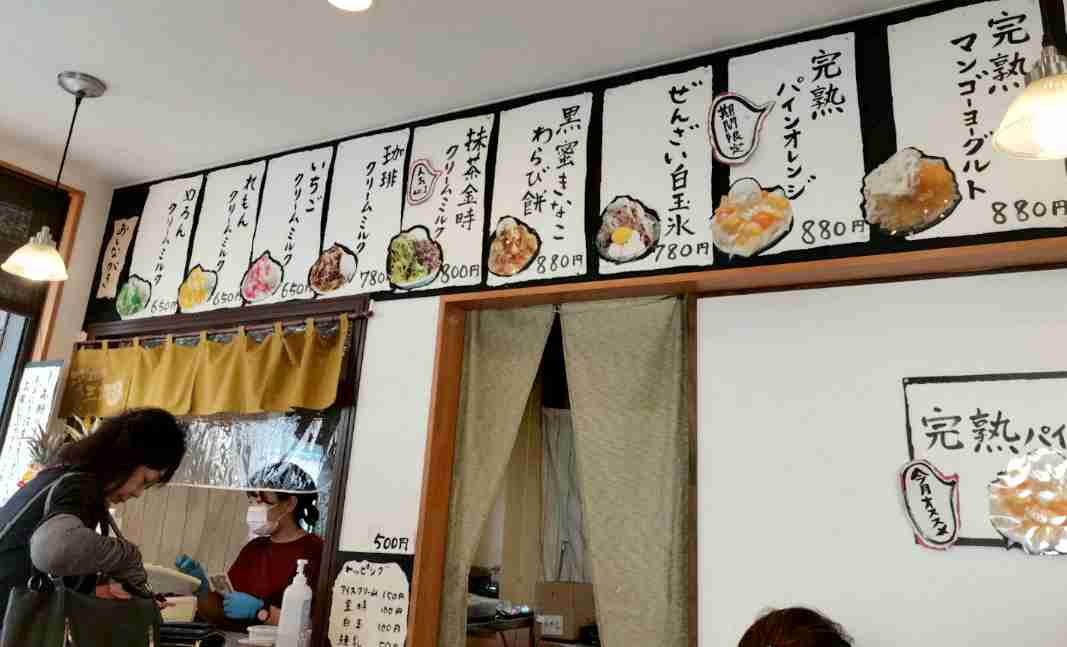 完熟
マンゴーヨーグルト
880円
完熟
パインオレンジ
期間限定
880円
ぜんざい白玉氷
780円
黒蜜きなこ
わらび餅
880円
抹茶金時
クリームミルク
800円
珈琲
クリームミルク
780
いちご
クリームミルク
650円
れもん
クリームミルク
650円
めろん
クリームミルク
650円
おしながき
完熟パイ
今月オススメ
500円
トッピング
アイスクリーム 150円
金時 100円
白玉 100円
練乳 50円